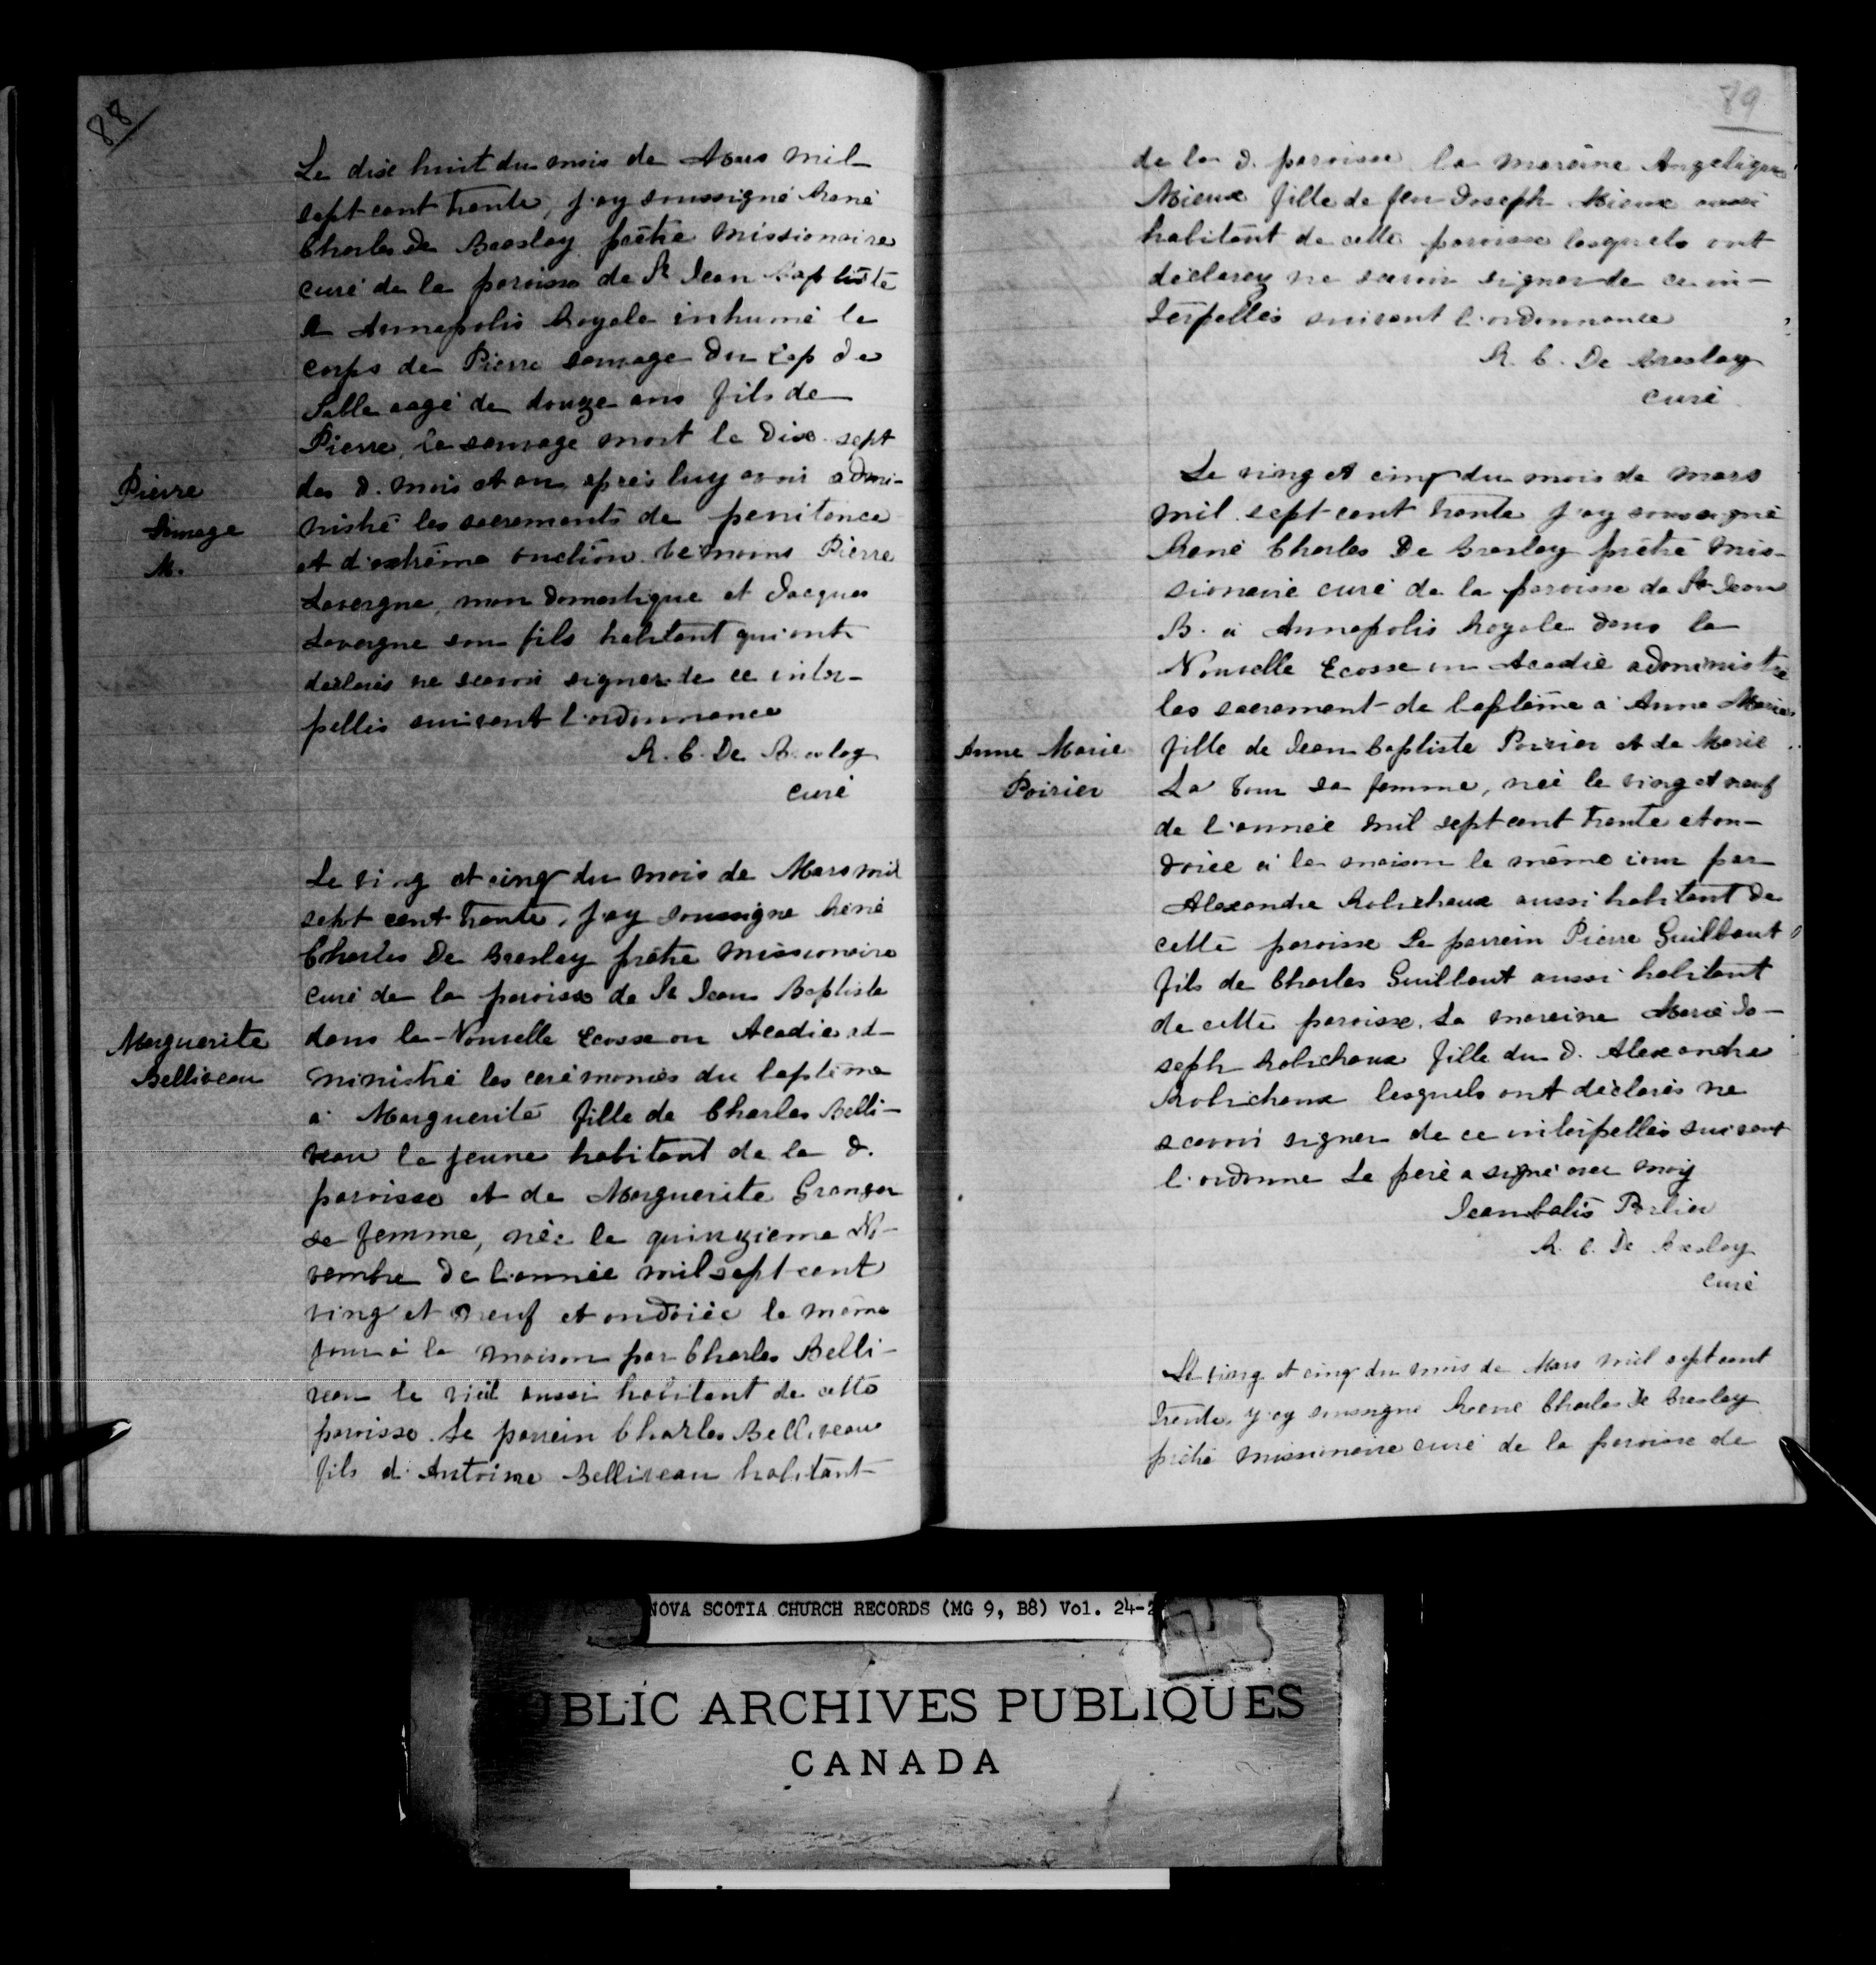 88
Le dix huit du mois de Mars mil
sept cent trente, j'ay soussigné René
Charles De Breslay prêtre missionaire
curé de la paroisse de St Jean Baptiste
à Annapolis Royale inhumé le
corps de Pierre sauvage du Cap de
Sable aagé de douze ans fils de
Pierre, le sauvage mort le dix-sept
des d. mois et an apres luy avoir admi-
nistré les sacrements de penitence
et d'extrême onction témoins Pierre
Lavergne, mon domestique et Jacques
Lavergne son fils habitant qui ont
déclarés ne scavoir signer de ce inter-
pellés suivant l'ordonnance
R. C. De Breslay
curé
Pierre
Sauvage
M.
Le ving et cinq du mois de Mars mil
sept cent trente, j'ay soussigne René
Charles De Breslay prêtre missionaire
curé de la paroisse de St Jean Baptiste
dans la Nouvelle Ecosse ou Acadie ad-
ministré les cerémonies du baptême
a Marguerite fille de Charles Belli-
veau le jeune habitant de la d.
paroisse et de Marguerite Granger
sa femme, née le quinzieme No-
vembre de l'année mil sept cent
ving et neuf et ondoiée le même
jour à la maison par Charles Belli-
veau le vieil aussi habitant de cette
paroisse. Le parrein Charles Belliveau
fils d'Antoine Belliveau habitant
Marguerite
Belliveau
89
de la d. paroisse la mareine Angelique
Mieux fille de feu Joseph Mieux aussi
habitant de cette paroisse lesquels ont
déclarez ne scavoir signer de ce in-
terpellés suivant l'ordonnance
R. C. De Breslay
curé
Le ving et cinq du mois de mars
mil sept cent trente j'ay soussigné
René Charles De Breslay prêtre mis-
sionaire curé de la paroisse de St Jean
B. à Annapolis Royale dans la
Nouvelle Ecosse ou Acadie administre
les sacrement de baptême a Anne Marie
fille de Jean Baptiste Poirier et de Marie
La Tour sa femme, née le ving et neuf
de l'année mil sept cent trente et on-
doiée à la maison le même jour par
Alexandre Robichaux aussi habitant de
cette paroisse Le parrein Pierre Guilbaut
fils de Charles Guilbaut aussi habitant
de cette paroisse. La mareine Marie Jo-
seph Robichaux fille du d. Alexandre
Robichaux lesquels ont déclarés ne
scavoir signer de ce interpellés suivant
l'ordonne Le père a signé avec moy
Jean batis Porlier
R. C. De Breslay
curé
Anne Marie
Poirier
Le ving et cinq du mois de Mars mil sept cent
trente, j'ay soussigne René Charles De Breslay
prêtre missionaire curé de la paroisse de
NOVA SCOTIA CHURCH RECORDS (MG 9, B8) Vol. 24-2
PUBLIC ARCHIVES PUBLIQUES
CANADA